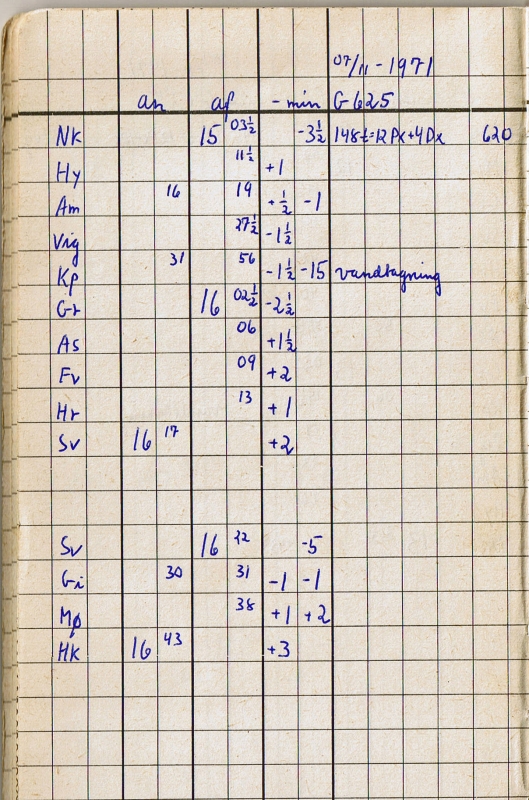 07/11-1971
an af - min G 625
Nk 15 03½ -3½ 148t=12Px+4Dx 620
Hy 11½ +1
Am 16 19 +½ -1
Vig 27½ -1½
Kp 31 56 -1½ -15 vandtagning
Gr 16 02½ -2½
As 06 +1½
Fv 09 +2
Hr 13 +1
Sv 16 17 +2
Sv 16 22 -5
Gi 30 31 -1 -1
Mø 38 +1 +2
Hk 16 43 +3